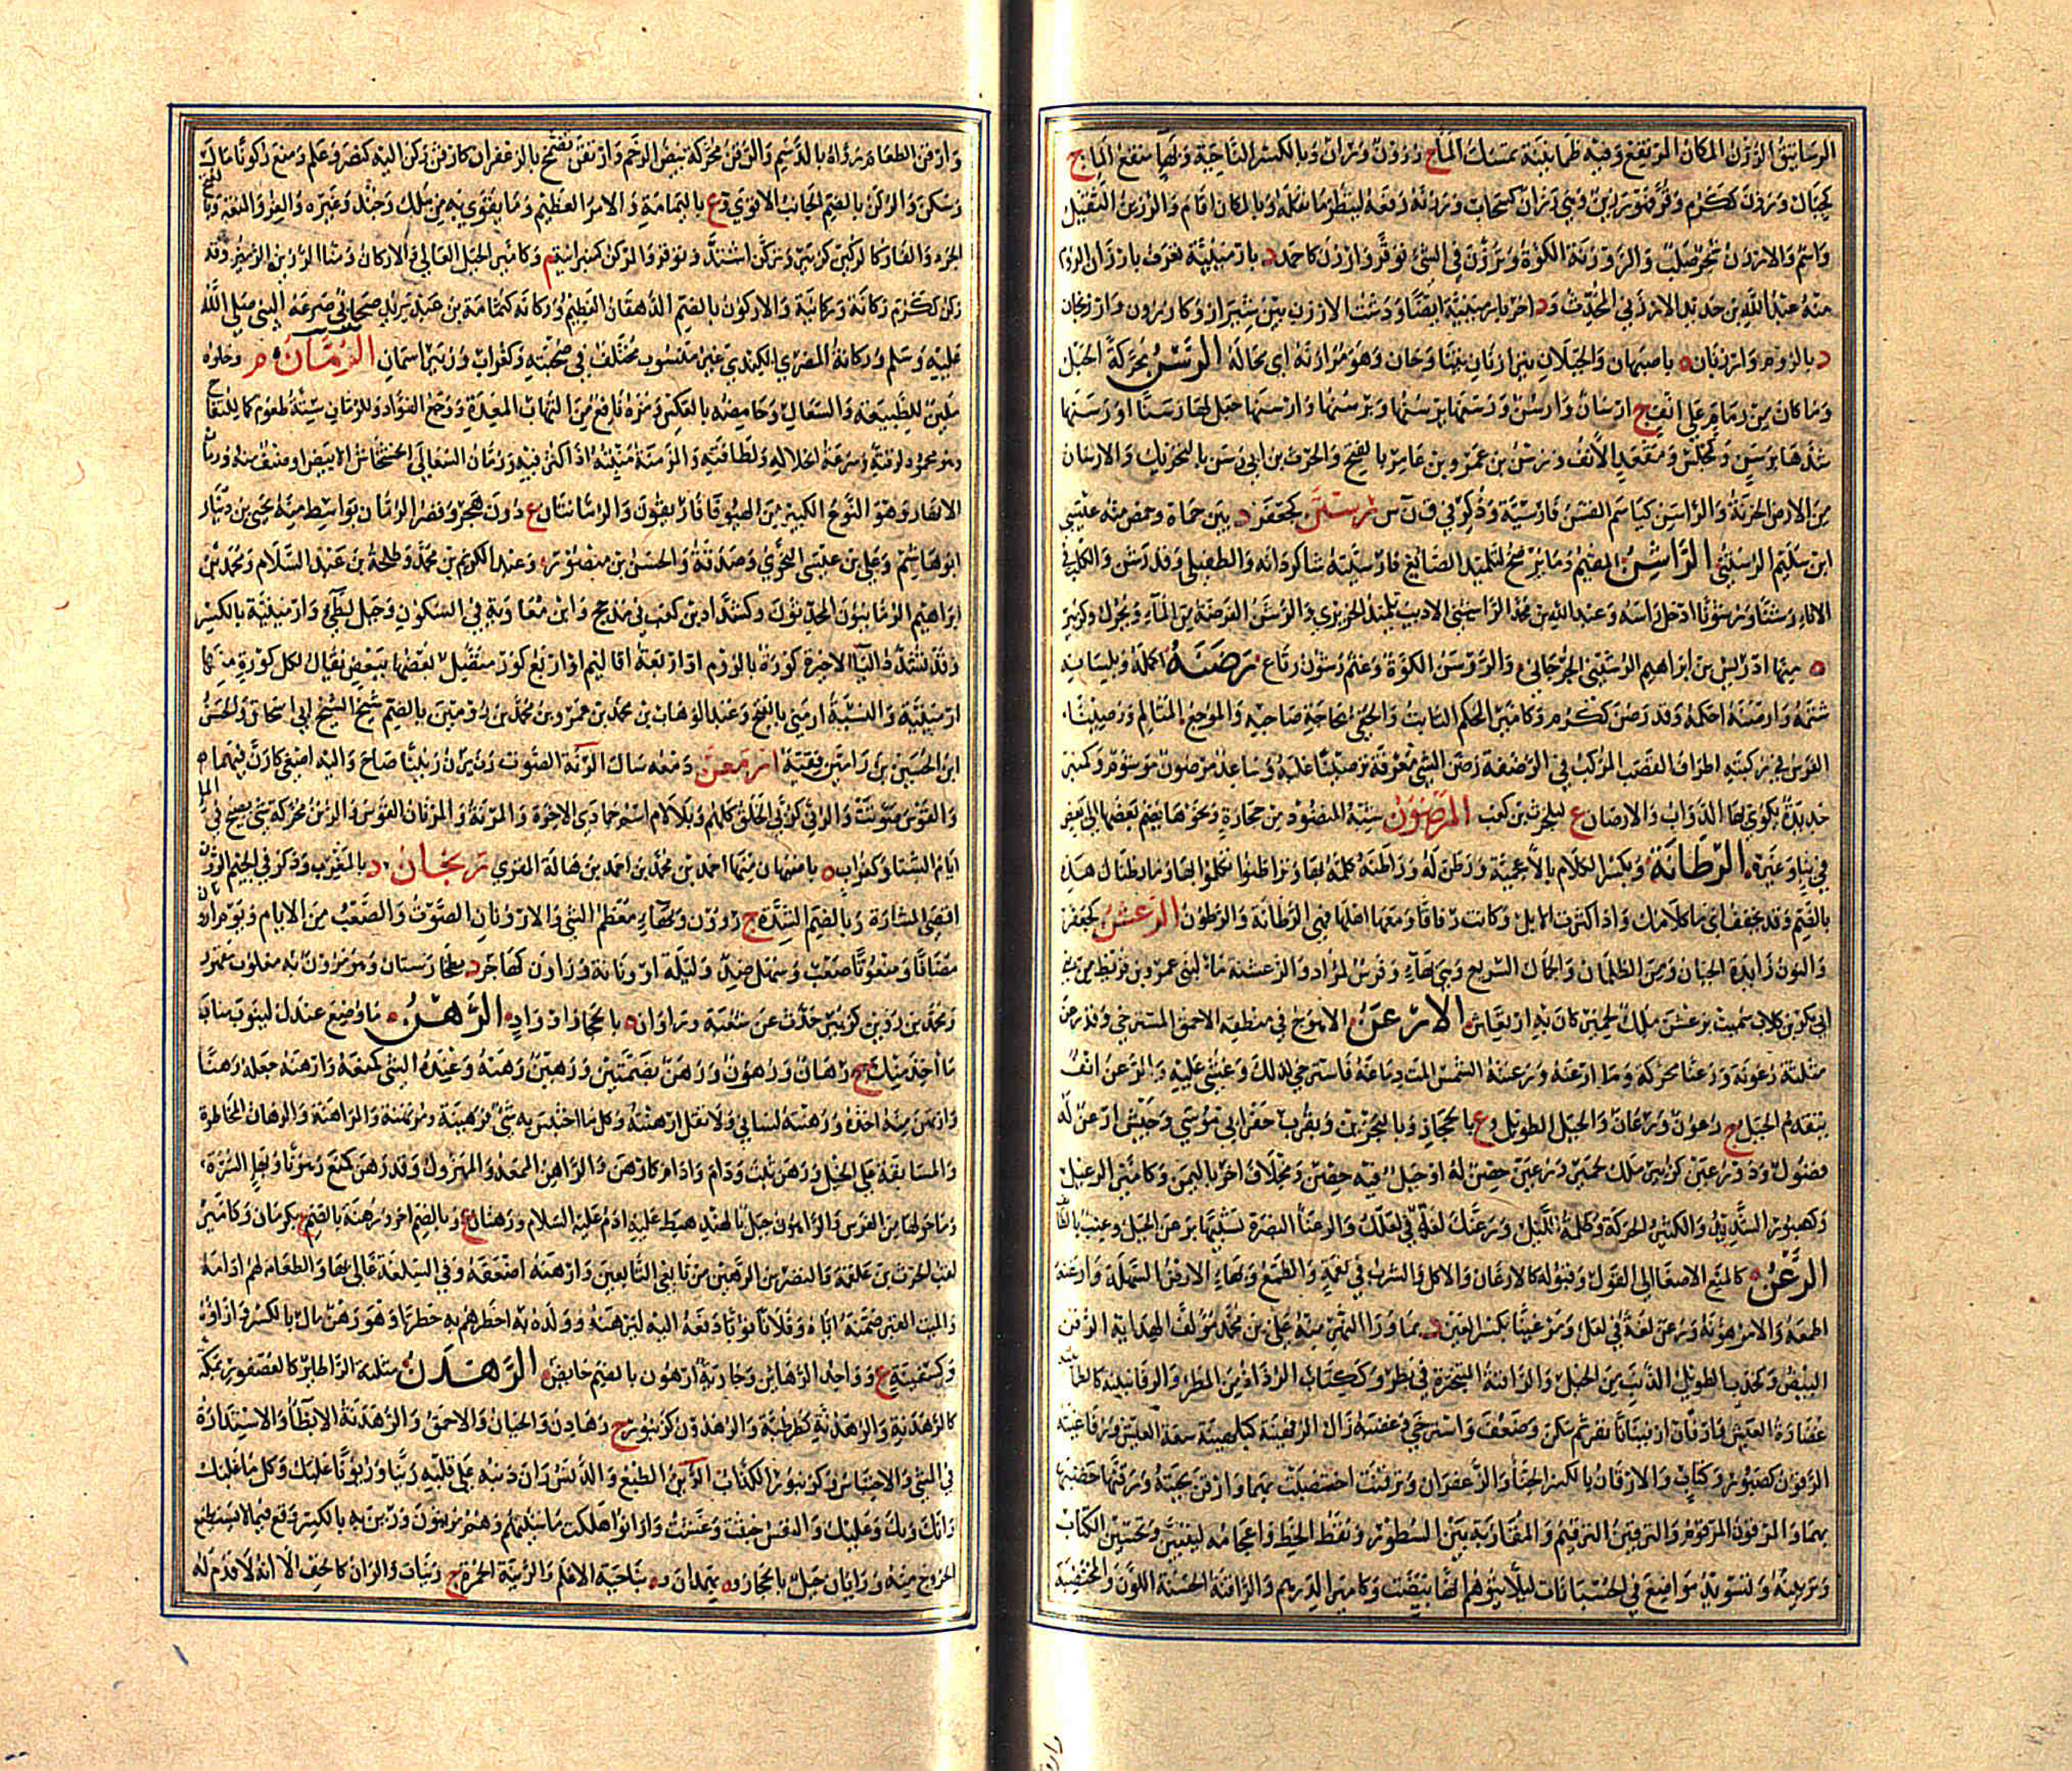 الرساتيق الرزن المكان المرتفع وفيه طمانينة يمسك الماء ج رزون ورزان وبالكسر الناحية وبهاء منقع الماء ج
كجبال ورزن ككرم وقر فهو رزين وهي رزان كسحاب ورزنه رفعه لينظر ما ثقله وبالمكان اقام والرزين الثقيل
واسم والارزن شجر صلب والروزنة الكوة وترزن في الشئ توقر وارزن كاحمد د بارمينية تعرف بارزن الروم
منه عبد الله بن حديد الارزني المحدث ود اخر بارمينية ايضا ودشت الارزن بين شيراز وكازرون وارزنجان
د بالروم وارزنان ه باصبهان والجبلان يترازنان يتناوحان وهو مرازنه اي محاله الرسن محركة الحبل
وما كان من زمام على انف ج ارسان وارسن ورسنها يرسنها ويرسنها وارسنها جعل لها رسنا او رسنها
شدها برسن وكمجلس ومقعد الانف ورسن بن عمرو وبن عامر بالفتح والحرث بن ابي رسن بالتحريك والارسان
من الارض الحزنة والراسن كياسم القنس فارسية وذكر في ق ن س رستن كجعفر د بين حماة وحمص منه عيسى
ابن سليم الرستني الراشن المقيم وما يرضخ لتلميذ الصانع فارسيته شاكردانه والطفيلي وقد رشن والكلب في
الاناء رشنا ورشونا ادخل راسه وعبد الله بن محمد الراشني الاديب تلميذ الحريري والرشن الفرضة من الماء ويحرك وكزبير
ه منها ادريس بن ابراهيم الرشيني الجرجاني والروشن الكوة وغنم رشون رتاع رصنه اكمله وبلسانه
شتمه وارصنه احكمه وقد رصن ككرم وكامير الحكم الثابت والحفي بحاجة صاحبه والموجع المتالم ورصينا
الفرس في ركبتيه اطراف القصب المركب في الرضفة رصن الشئ معرفة ترصينا علمه وساعد مرصون موسوم وكمنبر
حديدة يكوى بها الدواب والارصان ع لبلحرث بن كعب المرضون شبه المنضود من حجارة ونحوها يضم بعضها الى بعض
في بناء وغيره الرطانة ويكسر الكلام بالاعجمية ورطن له وراطنه كلمه بها وتراطنوا تكلموا بها وما رطيناك هذه
بالضم وقد يخفف اي ما كلامك واذا كثرت الابل وكانت رفاقا ومعها اهلها فهي الرطانة والرطون الرعشن كجعفر
والنون زائدة الجبان ومن الظلمان والجمال السريع وهي بهاء وفرس لمراد والرعشنة ماء لبني عمرو بن قريظ من بني
ابي بكر بن كلاب سميت برعشن ملك لحمير كان به ارتعاش الارعن الاهوج في منطقه الاحمق المسترخي وقد رعن
مثلثة رعونة ورعنا محركة وما ارعنه ورعنته الشمس المت دماغه فاسترخى لذلك وغشي عليه والرعن انف
يتقدم الجبل ج رعون ورعان والجبل الطويل وع بالحجاز وبالبحرين وبقرب حفر ابي موسى وجيش ارعن له
فضول وذو رعين كزبير ملك حمير ورعين حصن له او جبل فيه حصن ومخلاف اخر باليمن وكامير الرعيل
وكصبور الشديد والكثير الحركة وظلمة الليل ورعنك لغة في لعلك والرعناء البصرة تشبيها برعن الجبل وعنب بالطائف
الرغن كالمنع الاصغاء الى القول وقبوله كالارغان والاكل والشرب في نعمة والطمع وبهاء الارض السهلة وارغنه
اطمعه والامر هونه ورغن لغة في لعل ومرغينان بكسر الغين د بما وراء النهر منه علي بن محمد مؤلف الهداية الرفن
البيض وكخدب الطويل الذنب من الخيل والرافنة المتبخترة في بطر وككتاب الرذاذ من المطر والرفانينة كالطمانينة
غضارة العيش وارفان ارفينانا نفر ثم سكن وضعف واسترخى وغضبه زال الرفهنية كبلهنية سعة العيش ورفاغته
الرقون كصبور وكتاب والارقان بالكسر الحناء والزعفران وترقنت اختضبت بهما وارقن لحيته ورقنها خضبها
بهما والمرقون المرقوم والترقين الترقيم والمقاربة بين السطور ونقط الخط واعجامه ليتبين وتحسين الكتاب
وتزيينه وتسويد مواضع في الحسبانات لئلا يتوهم انها بيضت وكامير الدرهم والراقنة الحسنة اللون والمختضبة
وارقن الطعام رواه بالدسم والرقن محركة بيض الرخم وارتقن تضمخ بالزعفران كارقن ركن اليه كنصر وعلم ومنع ركونا مال
وسكن والركن بالضم الجانب الاقوى وع باليمامة والامر العظيم وما يقوى به من ملك وجند وغيره والعز والمنعة وبالفتح
الجرذ والفار كالركين كزبير وتركن اشتد وتوقر والمركن كمنبر انية م وكامير الجبل العالي الاركان ومنا الرزين الرميز وقد
ركن ككرم ركانة وركانية والاركون بالضم الدهقان العظيم وركانة كثمامة بن عبد يزيد صحابي صرعه النبي صلى الله
عليه وسلم وركانة المصري الكندي غير منسوب مختلف في صحبته وكغراب وزبير اسمان الرمان م وحلوه
ملين للطبيعة والسعال وحامضه بالعكس ومزه نافع من التهاب المعدة ووجع الفؤاد وللرمان ستة طعوم كما للتفاح
وهو محمود لرقته وسرعة انحلاله ولطافته والرمنة منبته اذا كثر فيه ورمان السعالي الخشخاش الابيض او صنف منه ورمان
الانهار وهو النوع الكبير من الهيوفاريقون والرمانتان ع دون هجر وقصر الرمان بواسط منه يحيى بن دينار
ابو هاشم وعلي بن عيسى النحوي وصدقة والحسن بن منصور وعبد الكريم بن محمد وطلحة بن عبد السلام ومحمد بن
ابراهيم الرمانيون المحدثون وكشداد بن كعب في مذحج وابن معاوية في السكون وجبل لطيئ وارمينية بالكسر
وقد تشدد الياء الاخيرة كورة بالروم او اربعة اقاليم او اربع كور متصل بعضها ببعض يقال لكل كورة منها
ارمينية والنسبة ارمني بالفتح وعبد الوهاب بن محمد بن عمرو بن محمد بن رومين بالضم شيخ الشيخ ابي اسحاق والحسن
ابن الحسين بن رامين فقيه ارمعن دمعه سال الرنة الصوت رن يرن رنينا صاح واليه اصغى كارن فيهما
والقوس صوتت والرنى كربى الخلق كلهم وبلا لام اسم جمادى الاخرة والمرنة والمرنان القوس والرنن محركة شئ يصيح في الماء
ايام الشتاء وكغراب ه باصبهان منها احمد بن محمد بن احمد بن هالة المقري رنجان د بالمغرب وذكر في الجيم الرون
اقصى المشارة وبالضم الشدة ج روون وبهاء معظم الشئ والارونان الصوت والصعب من الايام ويوم ارونان
مضافا ومنعوتا صعب وسهل ضد وليلة ارونانة وراون كهاجر د بطخارستان وهو مرون به مغلوب مقهور
ومحمد بن روين كزبير حدث عن شعبة وراوان ه بالحجاز او واد الرهن ما وضع عندك لينوب مناب
ما اخذ منك ج رهان ورهون ورهن بضمتين ورهين ورهنه وعنده الشئ كمنعه وارهنه جعله رهنا
وارتهن منه اخذه ورهنته لساني ولا تقل ارهنته وكل ما احتبس به شئ فرهينة ومرتهنة والراهنة والرهان المخاطرة
والمسابقة على الخيل ورهن ثبت ودام وادام كارهن والراهن المعد والمهزول وقد رهن كمنع رهونا وبهاء السرة
وما حولها من الفرس والراهون جبل بالهند هبط عليه ادم عليه السلام ورهنان ع وبالضم اخر ورهنة بالضم ع بكرمان وكامير
لقب الحرث بن علقمة والنضر بن الرهين من تابعي التابعين وارهنه اضعفه وفي السلعة غالى بها والطعام لهم ادامه
والميت القبر ضمنه اياه وفلانا ثوبا دفعه اليه ليرهنه وولده به اخطرهم به خطرا وهو رهن مال بالكسر ازاؤه
وكسفينة ع وواحد الرهائن وجارية ارهون بالضم حائض الرهدن مثلثة الراء طائر كالعصفور بمكة
كالرهدنة والرهدنة كطرطبة والرهدون كزنبور ج رهادن والجبان والاحمق والرهدنة الابطاء والاستدارة
في الشئ والاحتباس وكزنبور الكذاب الرين الطبع والدنس ران ذنبه على قلبه رينا وريونا غلبك وكل ما غلبك
رانك وبك وعليك والنفس خبثت وغشت وارانوا هلكت ماشيتهم وهم مرينون ورين به بالكسر وقع فيما لا يستطيع
الخروج منه ورايان جبل بالحجاز وه بهمذان وه بناحية الاعلم والرينة الخمرة ج رينات والران كالخف الا انه لا قدم له